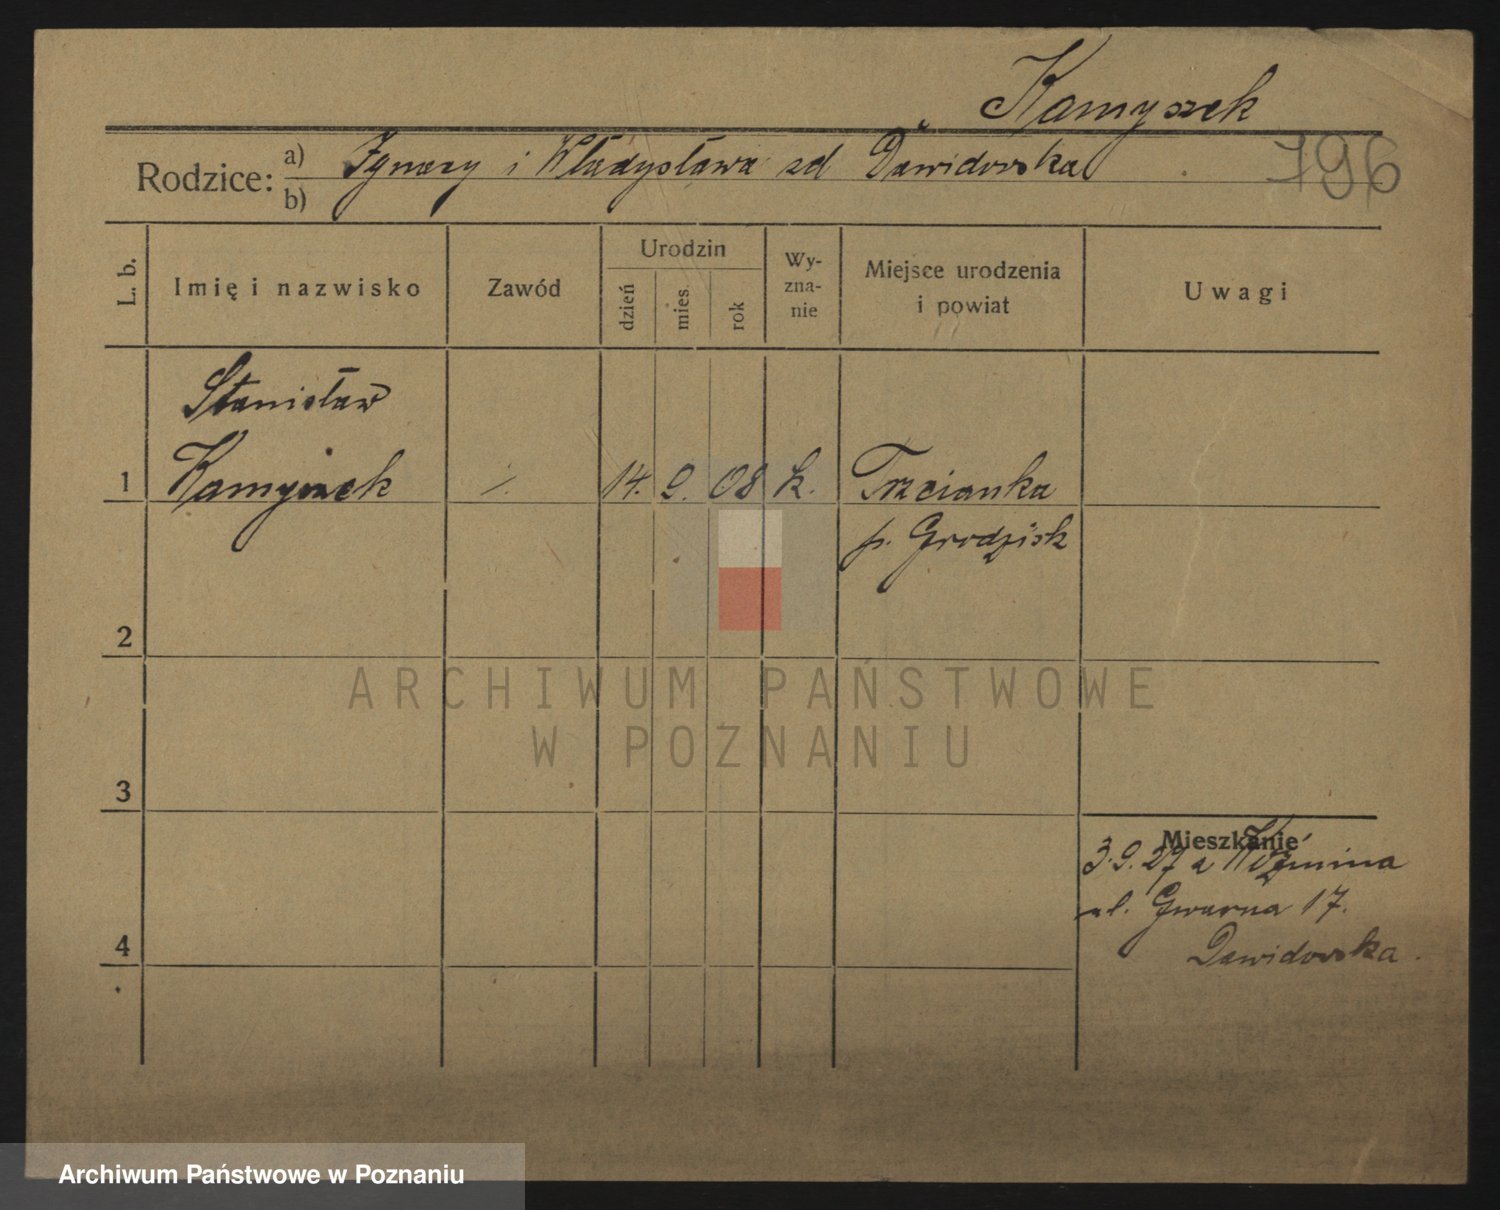 Kamyszek
Rodzice: a) Ignacy i Władysława zd Dawidowska
b)
796
L. b.
Imię i nazwisko
Zawód
Urodzin
dzień
mies.
rok
Wy-
zna-
nie
Miejsce urodzenia
i powiat
Uwagi
Stanisław
1 Kamyszek ./. 14. 9. 08 k. Trzcianka
p. Grodzisk
2
3
Mieszkanie
3.9.27 z Koźmina
ul. Gwarna 17.
Dawidowska.
4
ARCHIWUM PAŃSTWOWE
W POZNANIU
Archiwum Państwowe w Poznaniu